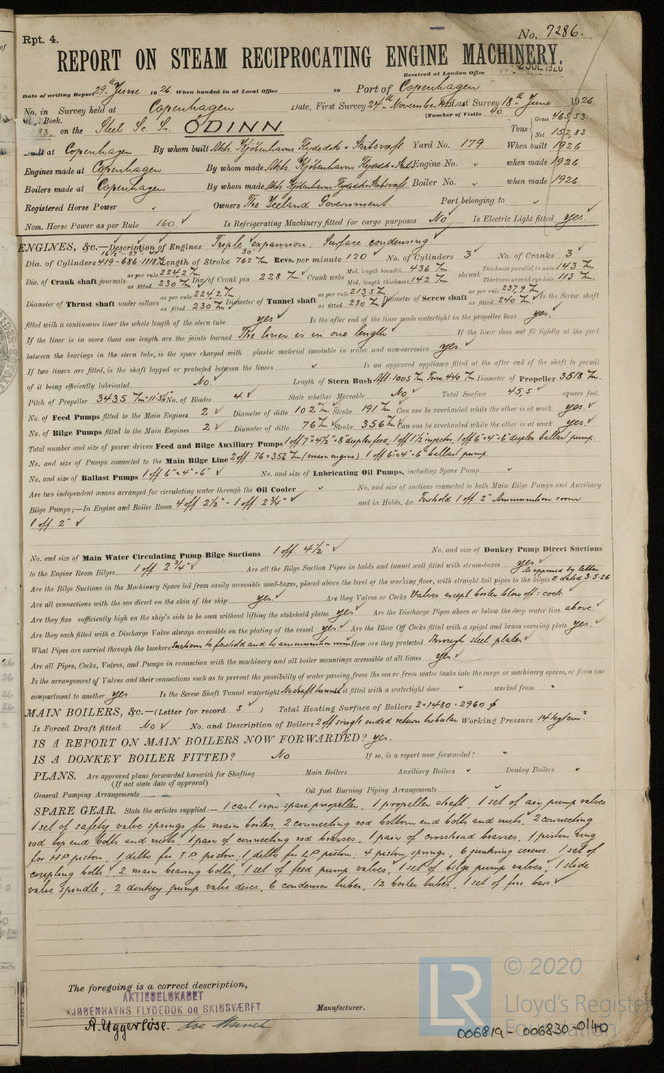 Rpt. 4.
No. 7286.
REPORT ON STEAM RECIPROCATING ENGINE MACHINERY.
Received at London Office
2 JUL 1926
Date of writing Report 29th June 1926. When handed in at Local Office 19 Port of Copenhagen
No. in Survey held at Copenhagen Date, First Survey 24th November Last Survey 18th June 1926
Book. (Number of Visits 40
93 on the Steel Sc. Sr. ODINN Tons Gross 465,53 Net 152,82
Built at Copenhagen By whom built Akts. Kjöbenhavns Flydedok & Skibsværft. Yard No. 179 When built 1926
Engines made at Copenhagen By whom made Akts. Kjöbenhavns Flydedok & Skibs. Engine No. " when made 1926
Boilers made at Copenhagen By whom made Akts. Kjöbenhavns Flydedok & Skibsværft. Boiler No. " when made 1926
Registered Horse Power Owners The Iceland Government Port belonging to
Nom. Horse Power as per Rule 160 Is Refrigerating Machinery fitted for cargo purposes No Is Electric Light fitted yes
ENGINES, &c.—Description of Engines Triple expansion. Surface condensing.
Dia. of Cylinders 419-686-1118 Length of Stroke 762 Revs. per minute 120 No. of Cylinders 3 No. of Cranks 3
Dia. of Crank shaft journals as per rule 224.2 as fitted 230 Dia. of Crank pin 228 Crank webs Mid. length breadth 436 Mid. length thickness 142 shrunk Thickness parallel to axis 143 Thickness around eye-hole 113
Diameter of Thrust shaft under collars as per rule 224.2 as fitted 230 Diameter of Tunnel shaft as per rule 213.5 as fitted 230 Diameter of Screw shaft as per rule 237.9 as fitted 240 Is the Screw shaft
fitted with a continuous liner the whole length of the stern tube yes Is the after end of the liner made watertight in the propeller boss yes
If the liner is in more than one length are the joints burned The liner is in one length If the liner does not fit tightly at the part
between the bearings in the stern tube, is the space charged with plastic material insoluble in water and non-corrosive yes
If two liners are fitted, is the shaft lapped or protected between the liners " Is an approved appliance fitted at the after end of the shaft to permit
of it being efficiently lubricated No Length of Stern Bush Aft 1005 Fore 440 Diameter of Propeller 3518
Pitch of Propeller 3435 No. of Blades 4 State whether Moveable No Total Surface 45,5 square feet.
No. of Feed Pumps fitted to the Main Engines 2 Diameter of ditto 102 Stroke 191 Can one be overhauled while the other is at work yes
No. of Bilge Pumps fitted to the Main Engines 2 Diameter of ditto 76 Stroke 356 Can one be overhauled while the other is at work yes
Total number and size of power driven Feed and Bilge Auxiliary Pumps 1 off 7"·4½"·8" duplex feed. 1 off 1½" injector. 1 off 6"·4"·6" duplex ballast pump
No. and size of Pumps connected to the Main Bilge Line 2 off 76×356 (main engine) 1 off 6"·4"·6" ballast pump
No. and size of Ballast Pumps 1 off 6"·4"·6" No. and size of Lubricating Oil Pumps, including Spare Pump "
Are two independent means arranged for circulating water through the Oil Cooler " No. and size of suctions connected to both Main Bilge Pumps and Auxiliary
Bilge Pumps;—In Engine and Boiler Room 4 off 2½" - 1 off 2¾" and in Holds, &c. Forehold 1 off 2" Ammunition room
1 off 2"
No. and size of Main Water Circulating Pump Bilge Suctions 1 off 4½" No. and size of Donkey Pump Direct Suctions
to the Engine Room Bilges 1 off 2¾" Are all the Bilge Suction Pipes in holds and tunnel well fitted with strum-boxes yes
Are the Bilge Suctions in the Machinery Space led from easily accessible mud-boxes, placed above the level of the working floor, with straight tail pipes to the bilges As approved by letter E dated 3-5-26
Are all connections with the sea direct on the skin of the ship yes Are they Valves or Cocks Valves except boiler blow off: cock
Are they fixed sufficiently high on the ship's side to be seen without lifting the stokehold plates yes Are the Discharge Pipes above or below the deep water line above
Are they each fitted with a Discharge Valve always accessible on the plating of the vessel yes Are the Blow Off Cocks fitted with a spigot and brass covering plate yes
What Pipes are carried through the bunkers Suctions to forehold and to ammunition room How are they protected Through steel plates
Are all Pipes, Cocks, Valves, and Pumps in connection with the machinery and all boiler mountings accessible at all times yes
Is the arrangement of Valves and their connections such as to prevent the possibility of water passing from the sea or from water tanks into the cargo or machinery spaces, or from one
compartment to another yes Is the Screw Shaft Tunnel watertight No shaft tunnel Is it fitted with a watertight door " worked from "
MAIN BOILERS, &c.—(Letter for record S ) Total Heating Surface of Boilers 2·1480·2960
Is Forced Draft fitted No No. and Description of Boilers 2 off single ended return tubular Working Pressure 14 kg/cm²
IS A REPORT ON MAIN BOILERS NOW FORWARDED? yes
IS A DONKEY BOILER FITTED? No If so, is a report now forwarded? "
PLANS. Are approved plans forwarded herewith for Shafting Main Boilers Auxiliary Boilers " Donkey Boilers "
(If not state date of approval)
General Pumping Arrangements Oil fuel Burning Piping Arrangements "
SPARE GEAR. State the articles supplied:— 1 cast iron spare propeller, 1 propeller shaft, 1 set of air pump valves
1 set of safety valve springs for main boilers, 2 connecting rod bottom end bolts and nuts, 2 connecting
rod top end bolts and nuts, 1 pair of connecting rod brasses, 1 pair of crosshead brasses, 1 piston ring
for H.P. piston, 1 ditto for I.P. piston, 1 ditto for L.P. piston, 4 piston springs, 6 junkring screws, 1 set of
coupling bolts, 2 main bearing bolts, 1 set of feed pump valves, 1 set of bilge pump valves, 1 slide
valve spindle, 2 donkey pump valve discs, 6 condenser tubes, 12 boiler tubes, 1 set of fire bars
The foregoing is a correct description,
AKTIESELSKABET
KJØBENHAVNS FLYDEDOK OG SKIBSVÆRFT
Manufacturer.
A. Uggerløse.
LR
© 2020
Lloyd's Register
Foundation
006819 - 006830-0140